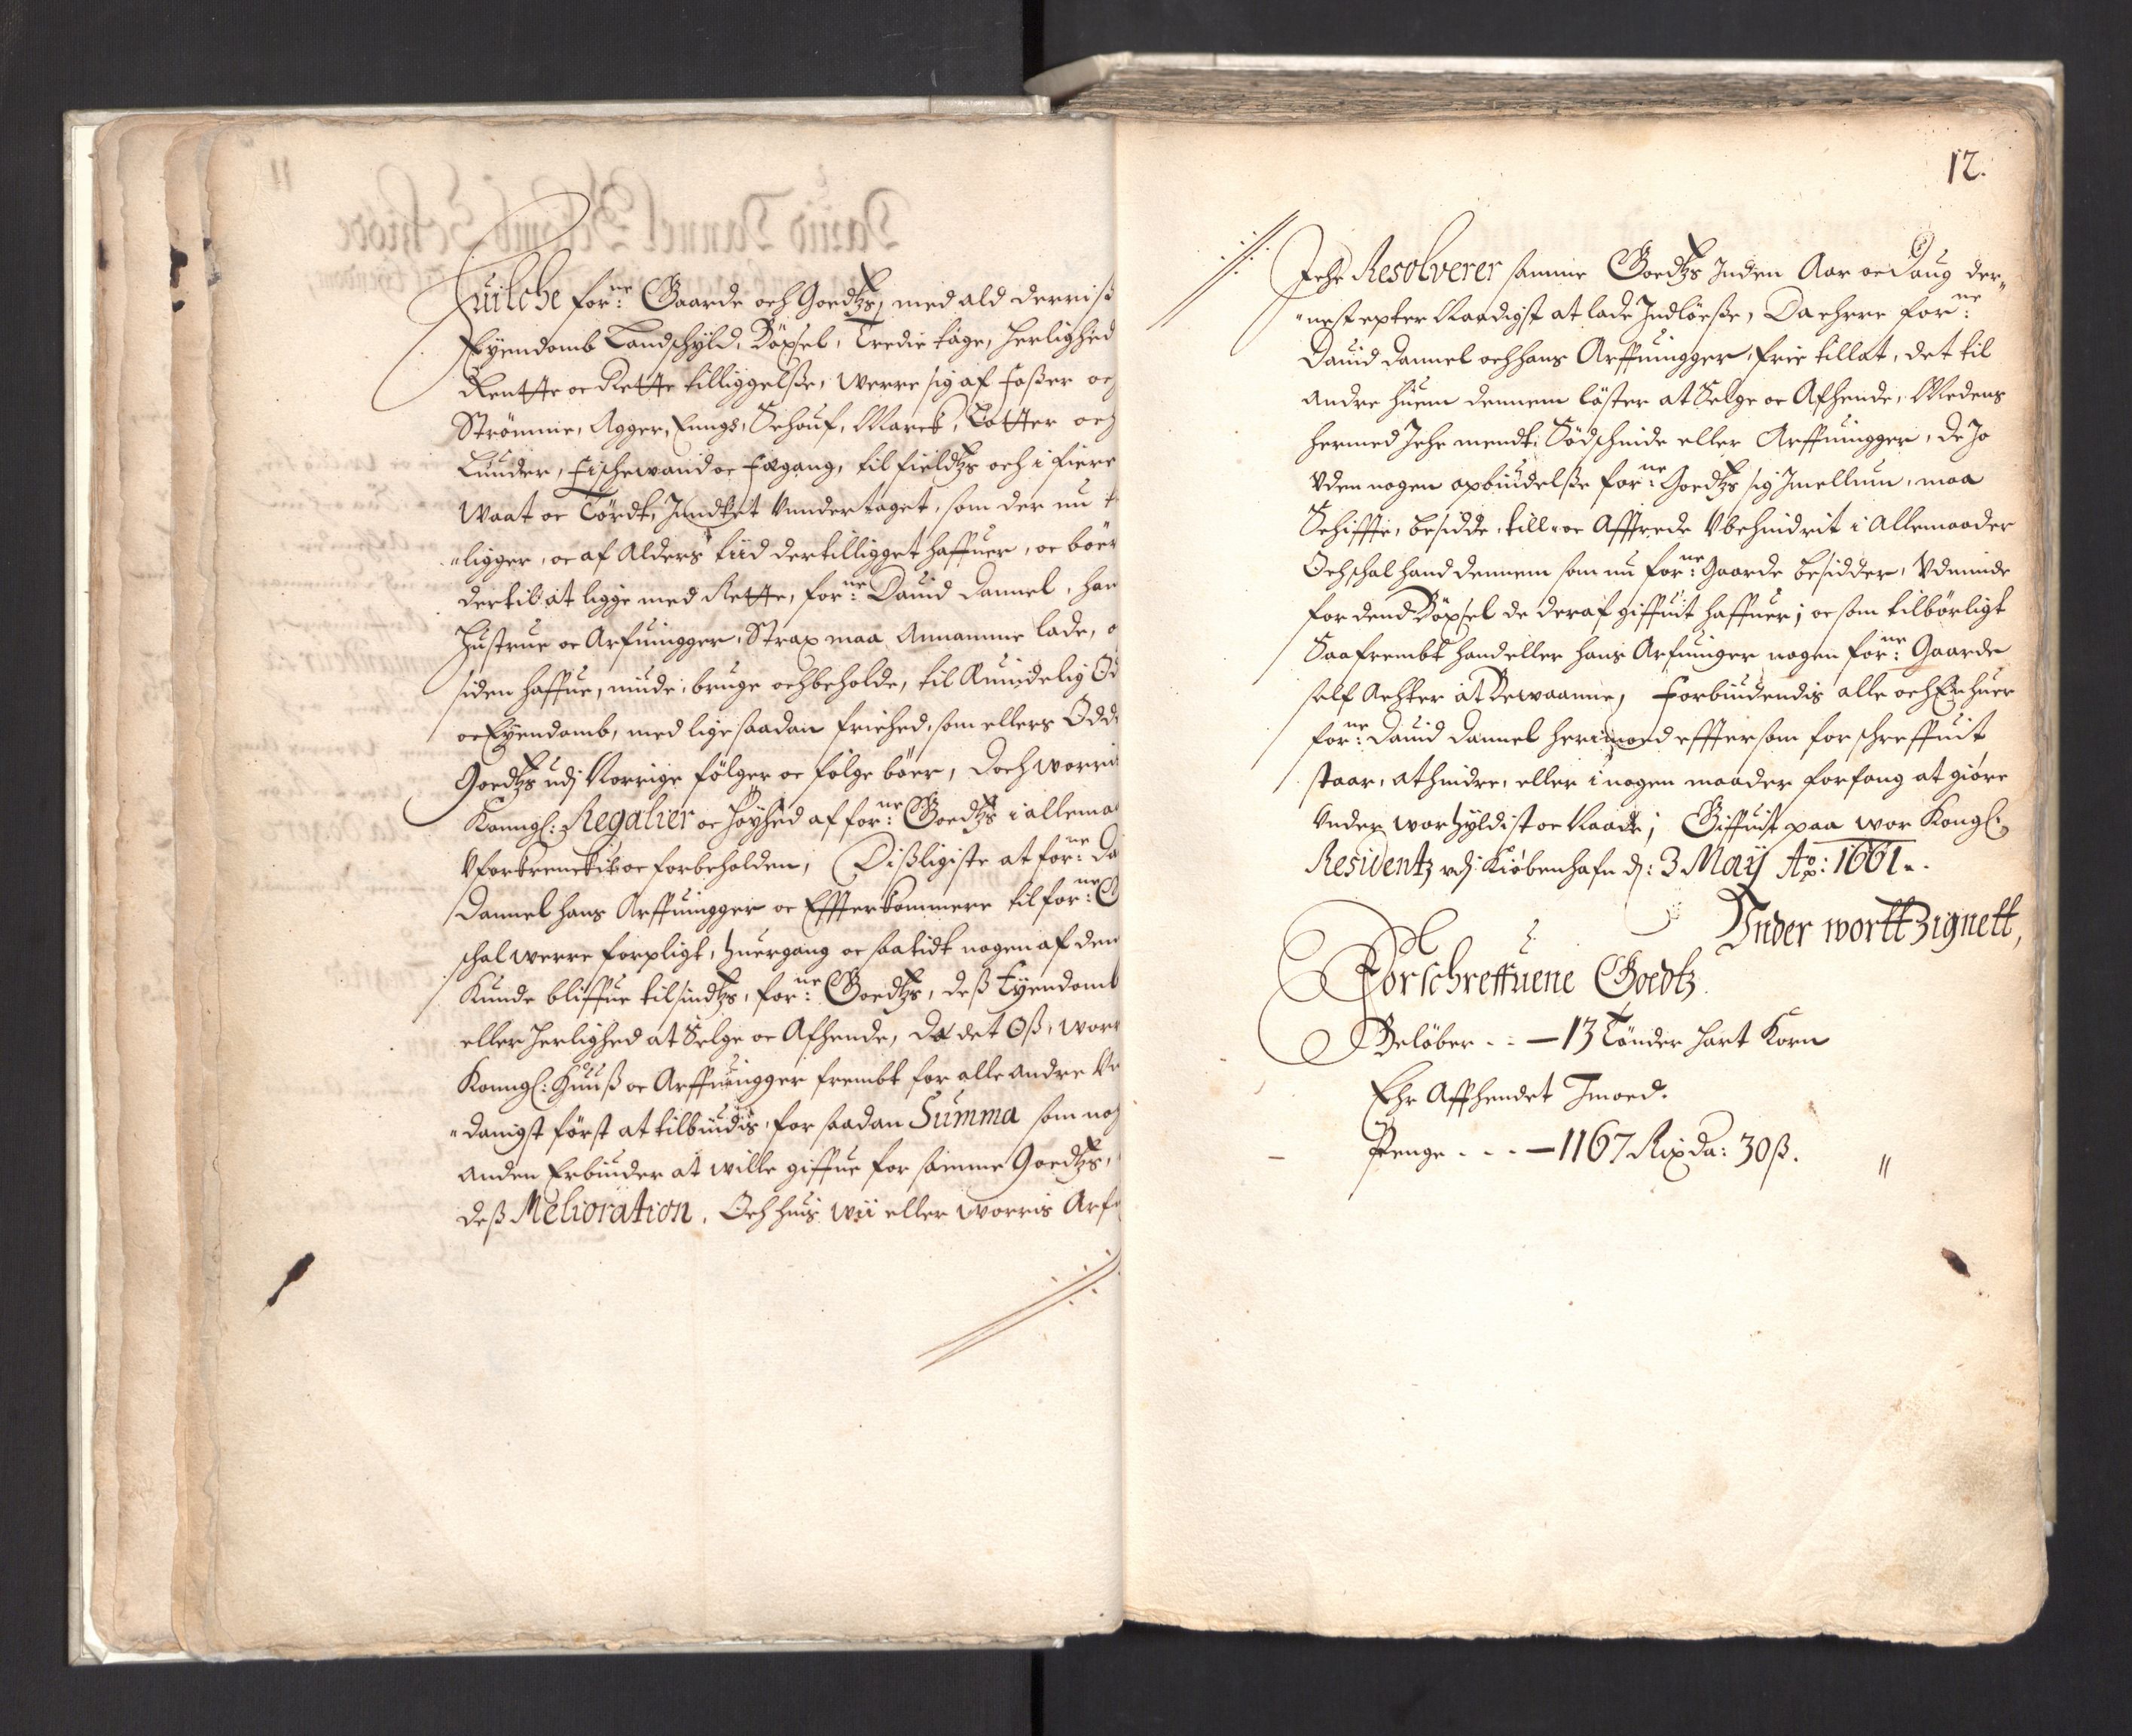 Huilche for:ne Gaarde och Goedtzs, med ald derris
Eyendomb Landschyld, Böxsel, Tredie tage, herlighed
Rentte oc Rette tilliggelsße, werre sig af Foßer och
Strömme, Agger, Eungs, Schouf, Marck, Totter och
Lunder, Fischewand oc Fægang, til fieldtzs och i fiere
Waat oc Tördt, Inndtet Unndertaget, som der nu t
"ligger, oc af Alders tiid dertilligget haffuer, oc böer
dertil at ligge med Rette, for:ne Dauid Dannel, han
Hustrue oc Arfuingger, Strax maa Annamme lade, o
siden haffue, niude, bruge och beholde, til Æuindelig Od
oc Eyendomb, med lige saadan friehed, som ellers Odde
Goedtzs udj Norrige fölger oc fölge böer, Doch worris
Konngl: Regalier oc Höyhed af for:ne Goedtzs i allemaa
Uforkrenckit oc forbeholden, Dißligiste at for:ne Da
Dannel hans Arffuingger oc Effterkommere til for:ne G
schal werre forpligt, huergang oc saatidt nogen af dem
kunde bliffue tilsindtzs, for:ne Goedtzs, deß Eyendomb
eller herlighed at Selge oc Afhende, Da det Oß, worr
Konngl: Huuß oc Arffuingger frembt for alle andre Un
"danigst först at tilbiudis, for saadan Summa som nog
anden Erbiuder at wille giffue for samme Goedtzs,
deß Melioration. Och huis wii eller worris Arf
12.
Iche Resolverer samme Goedtzs Inden Aar oc Daug der"
"nest epter Naadigst at lade Indlöeße, Da ehrre for:ne
Dauid Dannel och hans Arffuingger, frie tillat, det til
andre huem dennem löster at Selge oc Afhende, Medens
hermed Iche mendt: Södschinde eller Arffuingger, de Io
Uden nogen opbiudelße for:ne Goedtzs sig Imellum, maa
Schiffte, besidde, till oc Afftrede Ubehindrit i Allemaader
Och schal hand dennem som nu for:ne Gaarde besidder, Udminde
for dend Böxsel de deraf giffuit haffuer; oc som tilbörligt
Saafrembt hand eller hans Arfuinger nogen for:ne Gaarde
self Achter at Bewaanne, Forbiudendis alle och Enhuer
for:ne Dauid Dannel herimoed effter som forschreffuit
staar, at hindre, eller i nogen maader forfang at giöre
Under wor hyldist oc Naade; Giffuit paa wor Kongl:
Residentz udj Kiöbenhafn dj: 3 Maÿ Ao: 1661.
Under wortt Zignett,
Forschreffuene Goedtz
Belöber . . — 13 Tönder Hart Korn
Ehr Affhendet Imoed.
Penge . . . — 1167 Rixda: 30 ß.